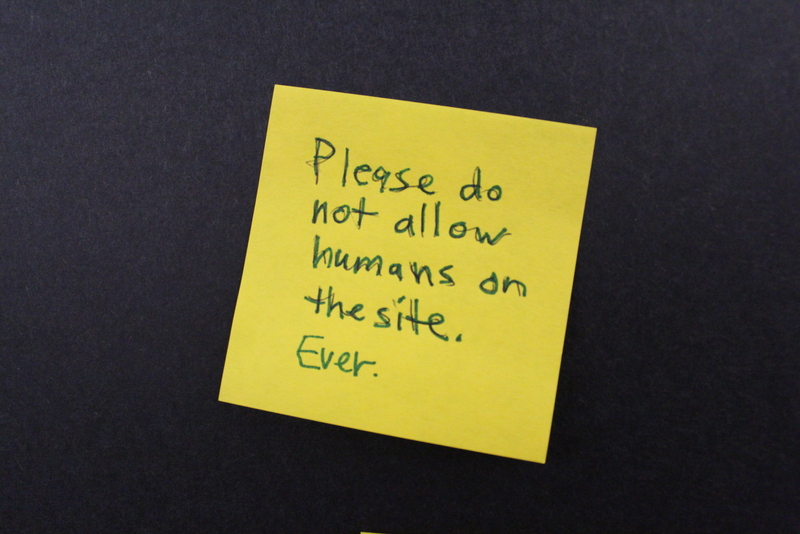 Please do
not allow
humans on
the site.
Ever.